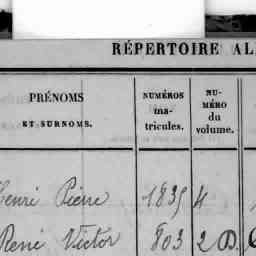 RÉPERTOIRE AL
PRÉNOMS
ET SURNOMS.
NUMÉROS
ma-
tricules.
NU-
MÉRO
du
volume.
Henri Pierre 1835 4
René Victor 803 2 D.